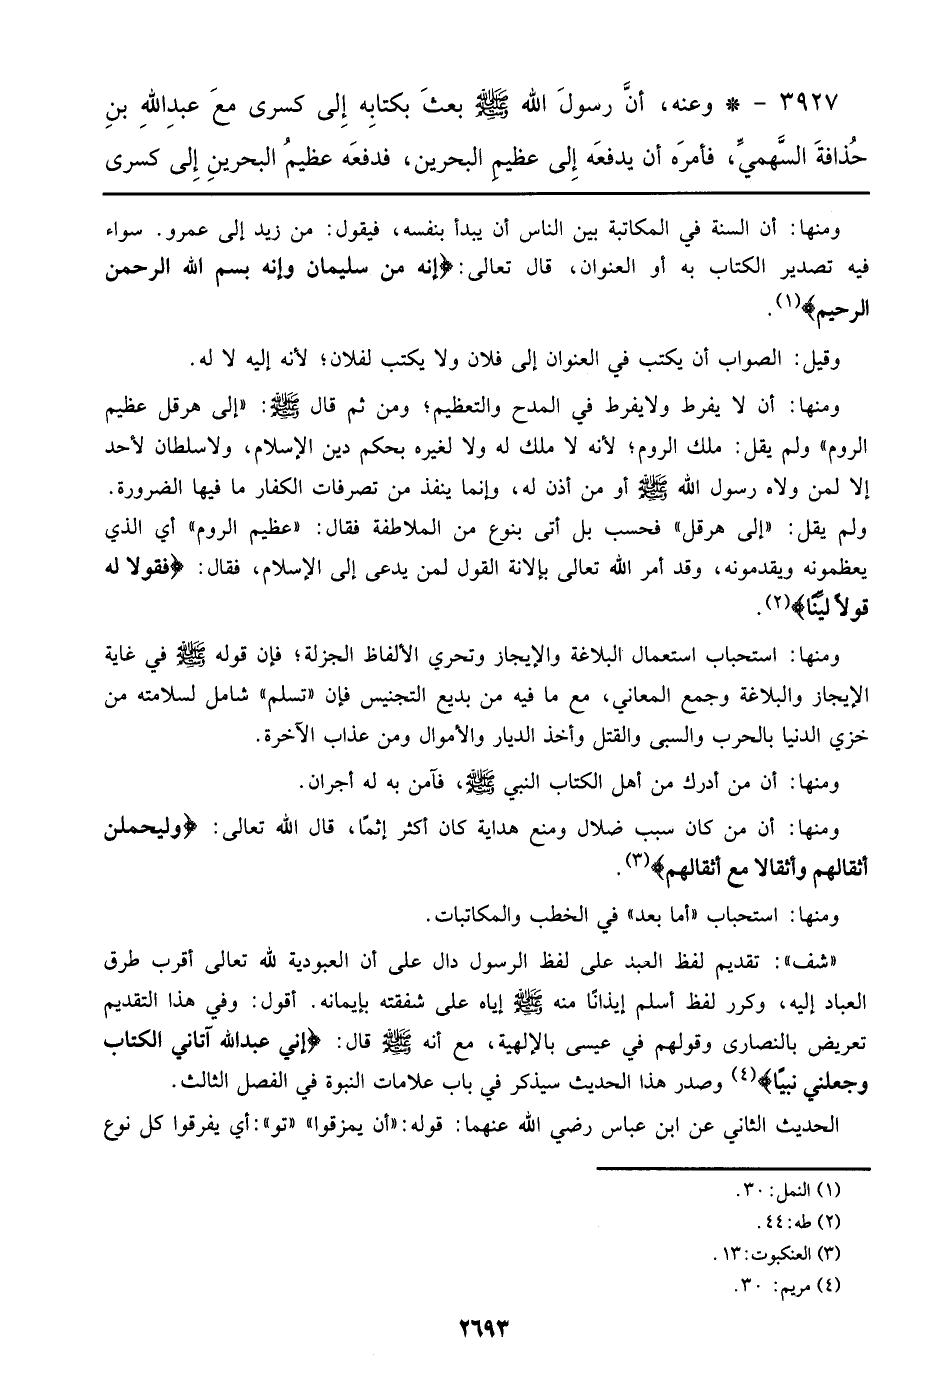 ٣٩٢٧ - * وعنه، أنَّ رسولَ الله ﷺ بعثَ بكتابِه إِلى كسرى معَ عبدِاللهِ بنِ
حُذافةَ السَّهميِّ، فأمرَه أن يدفعَه إِلى عظيمِ البحرين، فدفعَه عظيمُ البحرينِ إِلى كسرى
ومنها: أن السنة في المكاتبة بين الناس أن يبدأ بنفسه، فيقول: من زيد إلى عمرو. سواء
فيه تصدير الكتاب به أو العنوان، قال تعالى: ﴿إنه من سليمان وإنه بسم الله الرحمن
الرحيم﴾(١).
وقيل: الصواب أن يكتب في العنوان إلى فلان ولا يكتب لفلان؛ لأنه إليه لا له.
ومنها: أن لا يفرط ولايفرط في المدح والتعظيم؛ ومن ثم قال ﷺ: «إلى هرقل عظيم
الروم» ولم يقل: ملك الروم؛ لأنه لا ملك له ولا لغيره بحكم دين الإسلام، ولاسلطان لأحد
إلا لمن ولاه رسول الله ﷺ أو من أذن له، وإنما ينفذ من تصرفات الكفار ما فيها الضرورة.
ولم يقل: «إلى هرقل» فحسب بل أتى بنوع من الملاطفة فقال: «عظيم الروم» أي الذي
يعظمونه ويقدمونه، وقد أمر الله تعالى بإلانة القول لمن يدعى إلى الإسلام، فقال: ﴿فقولا له
قولاً ليِّنًا﴾(٢).
ومنها: استحباب استعمال البلاغة والإيجاز وتحري الألفاظ الجزلة؛ فإن قوله ﷺ في غاية
الإيجاز والبلاغة وجمع المعاني، مع ما فيه من بديع التجنيس فإن «تسلم» شامل لسلامته من
خزي الدنيا بالحرب والسبى والقتل وأخذ الديار والأموال ومن عذاب الآخرة.
ومنها: أن من أدرك من أهل الكتاب النبي ﷺ، فآمن به له أجران.
ومنها: أن من كان سبب ضلال ومنع هداية كان أكثر إثمًا، قال الله تعالى: ﴿وليحملن
أثقالهم وأثقالا مع أثقالهم﴾(٣).
ومنها: استحباب «أما بعد» في الخطب والمكاتبات.
«شف»: تقديم لفظ العبد على لفظ الرسول دال على أن العبودية لله تعالى أقرب طرق
العباد إليه، وكرر لفظ أسلم إيذانًا منه ﷺ إياه على شفقته بإيمانه. أقول: وفي هذا التقديم
تعريض بالنصارى وقولهم في عيسى بالإلهية، مع أنه ﷺ قال: ﴿إني عبدالله آتاني الكتاب
وجعلني نبيًا﴾(٤) وصدر هذا الحديث سيذكر في باب علامات النبوة في الفصل الثالث.
الحديث الثاني عن ابن عباس رضي الله عنهما: قوله: «أن يمزقوا» «تو»: أي يفرقوا كل نوع
(١) النمل: ٣٠.
(٢) طه: ٤٤.
(٣) العنكبوت: ١٣.
(٤) مريم: ٣٠.
٢٦٩٣